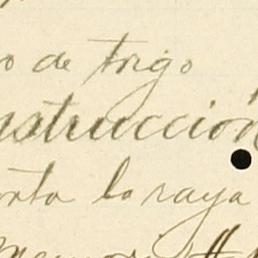 o de trigo
nstrucción
nta la raya